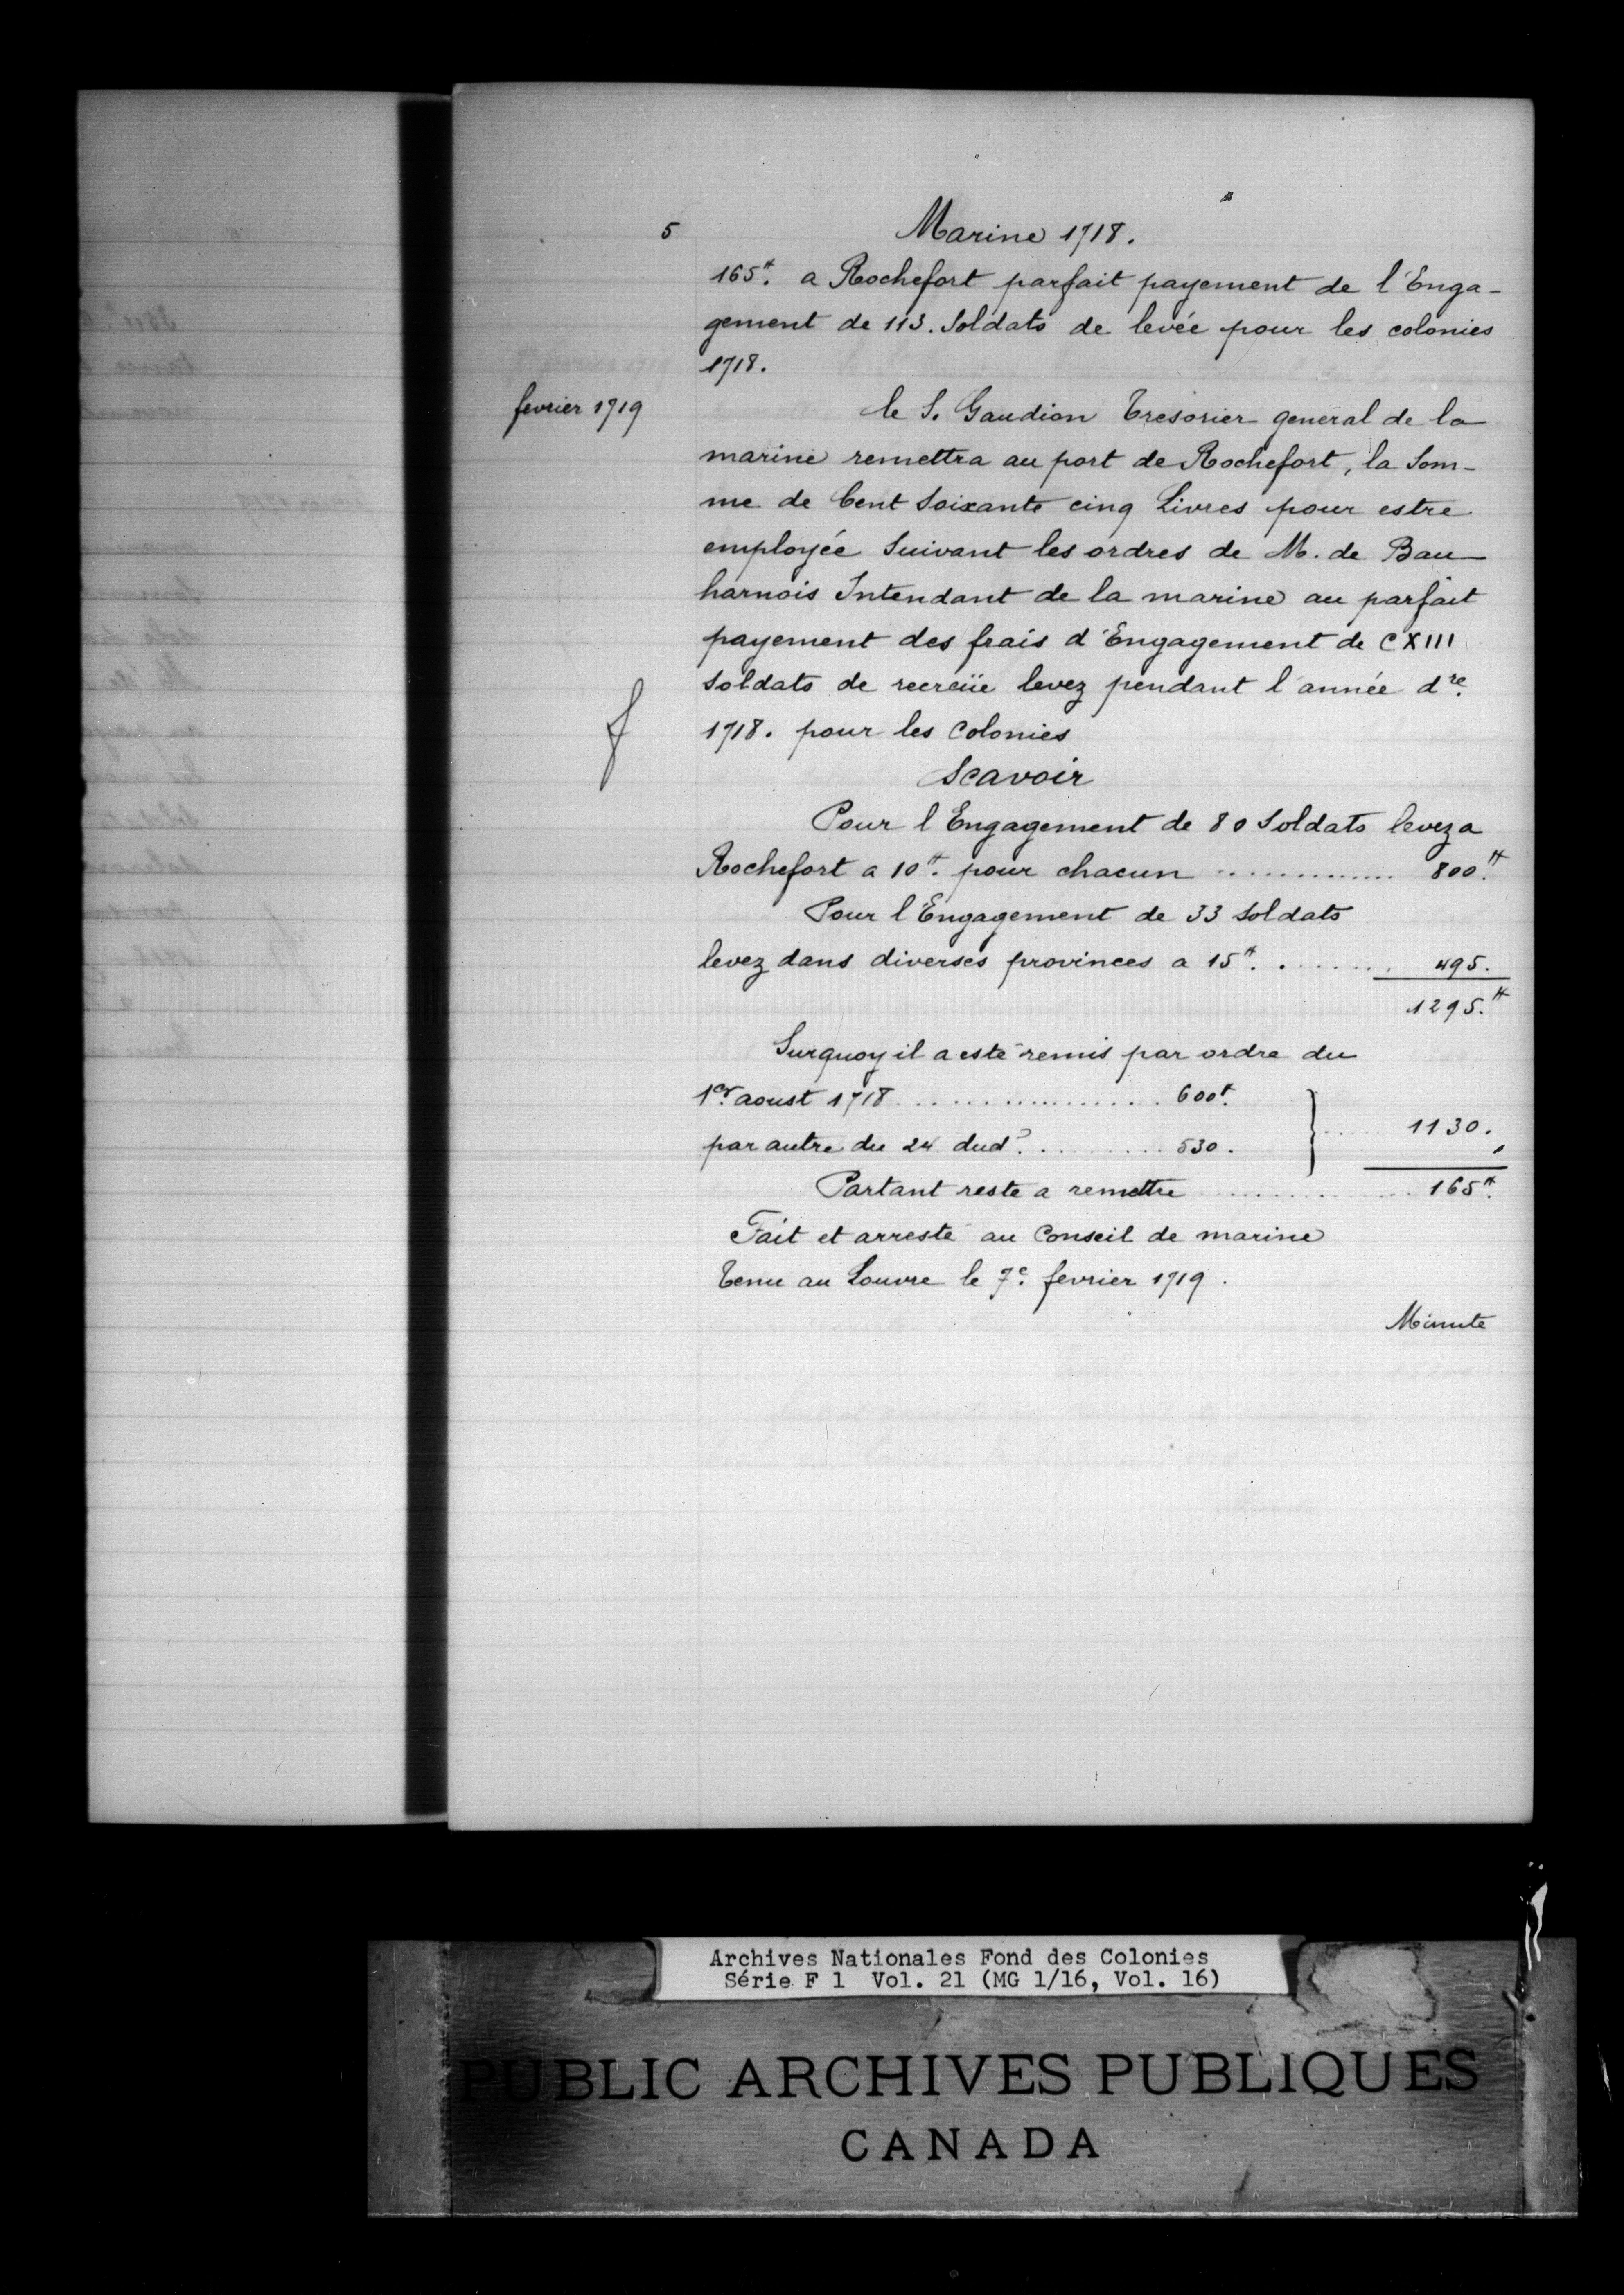 5
Marine 1718.
165#. a Rochefort parfait payement de l'Enga-
gement de 113. Soldats de levée pour les colonies
1718.
fevrier 1719
le S. Gaudion Tresorier general de la
marine remettra au port de Rochefort, la Som-
me de Cent Soixante cinq Livres pour estre
employée Suivant les ordres de M. de Bau-
harnois Intendant de la marine au parfait
payement des frais d'Engagement de CXIII
Soldats de recreüe levez pendant l'année dre.
1718. pour les Colonies
Scavoir
Pour l'Engagement de 80 Soldats levez a
Rochefort a 10#. pour chacun .............. 800#.
Pour l'Engagement de 33 Soldats
levez dans diverses provinces a 15#. ........ 495.
1295.#
Surquoy il a esté remis par ordre du
1er. aoust 1718 .................. 600#.
par autre du 24 dud. ......... 530.
} ..... 1130.
Partant reste a remettre ............... 165#.
Fait et arresté au Conseil de marine
Tenu au Louvre le 7e. fevrier 1719.
Minute
Archives Nationales Fond des Colonies
Série F 1 Vol. 21 (MG 1/16, Vol. 16)
PUBLIC ARCHIVES PUBLIQUES
CANADA